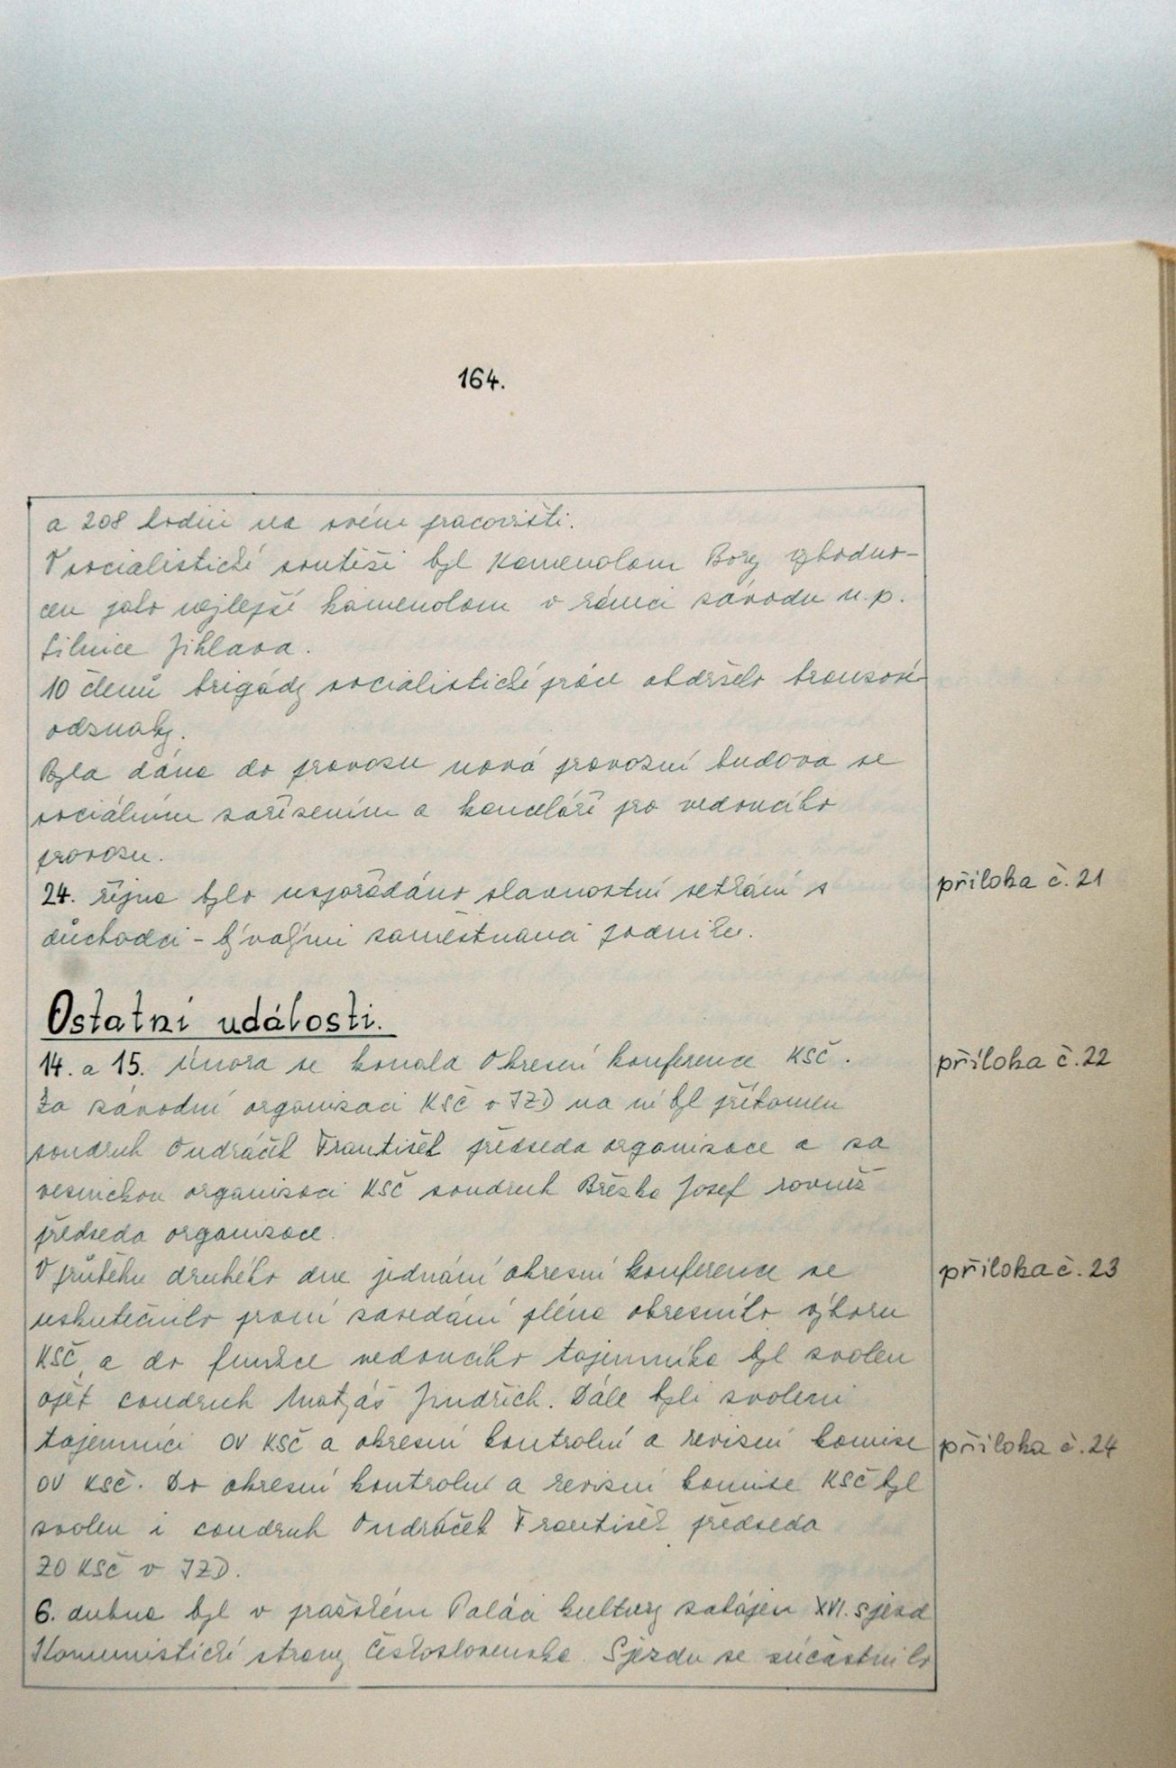 164.
a 208 hodin na svém pracovišti.
V socialistické soutěži byl Kamenolom Bory vyhodno-
cen jako nejlepší kamenolom v rámci závodu n.p.
Silnice Jihlava.
10 členů brigády socialistické práce obdrželo bronzové
odznaky.
Byla dána do provozu nová provozní budova se
sociálním zařízením a kanceláří pro vedoucího
provozu.
24. října bylo uspořádáno slavnostní setkání s
příloha č. 21
důchodci - bývalými zaměstnanci podniku.
Ostatní události.
14. a 15. února se konala Okresní konference KSČ.
příloha č. 22
Za závodní organizaci KSČ v JZD na ní byl přítomen
soudruh Ondráček František předseda organizace a za
vesnickou organizaci KSČ soudruh Březka Josef rovněž
předseda organizace.
V průběhu druhého dne jednání okresní konference se
příloha č. 23
uskutečnilo první zasedání pléna okresního výboru
KSČ a do funkce vedoucího tajemníka byl zvolen
opět soudruh Matyáš Jindřich. Dále byli zvoleni
tajemníci OV KSČ a okresní kontrolní a revizní komise
příloha č. 24
OV KSČ. Do okresní kontrolní a revizní komise KSČ byl
zvolen i soudruh Ondráček František předseda
ZO KSČ v JZD.
6. dubna byl v pražském Paláci kultury zahájen XVI. sjezd
Komunistické strany Československa. Sjezdu se zúčastnilo